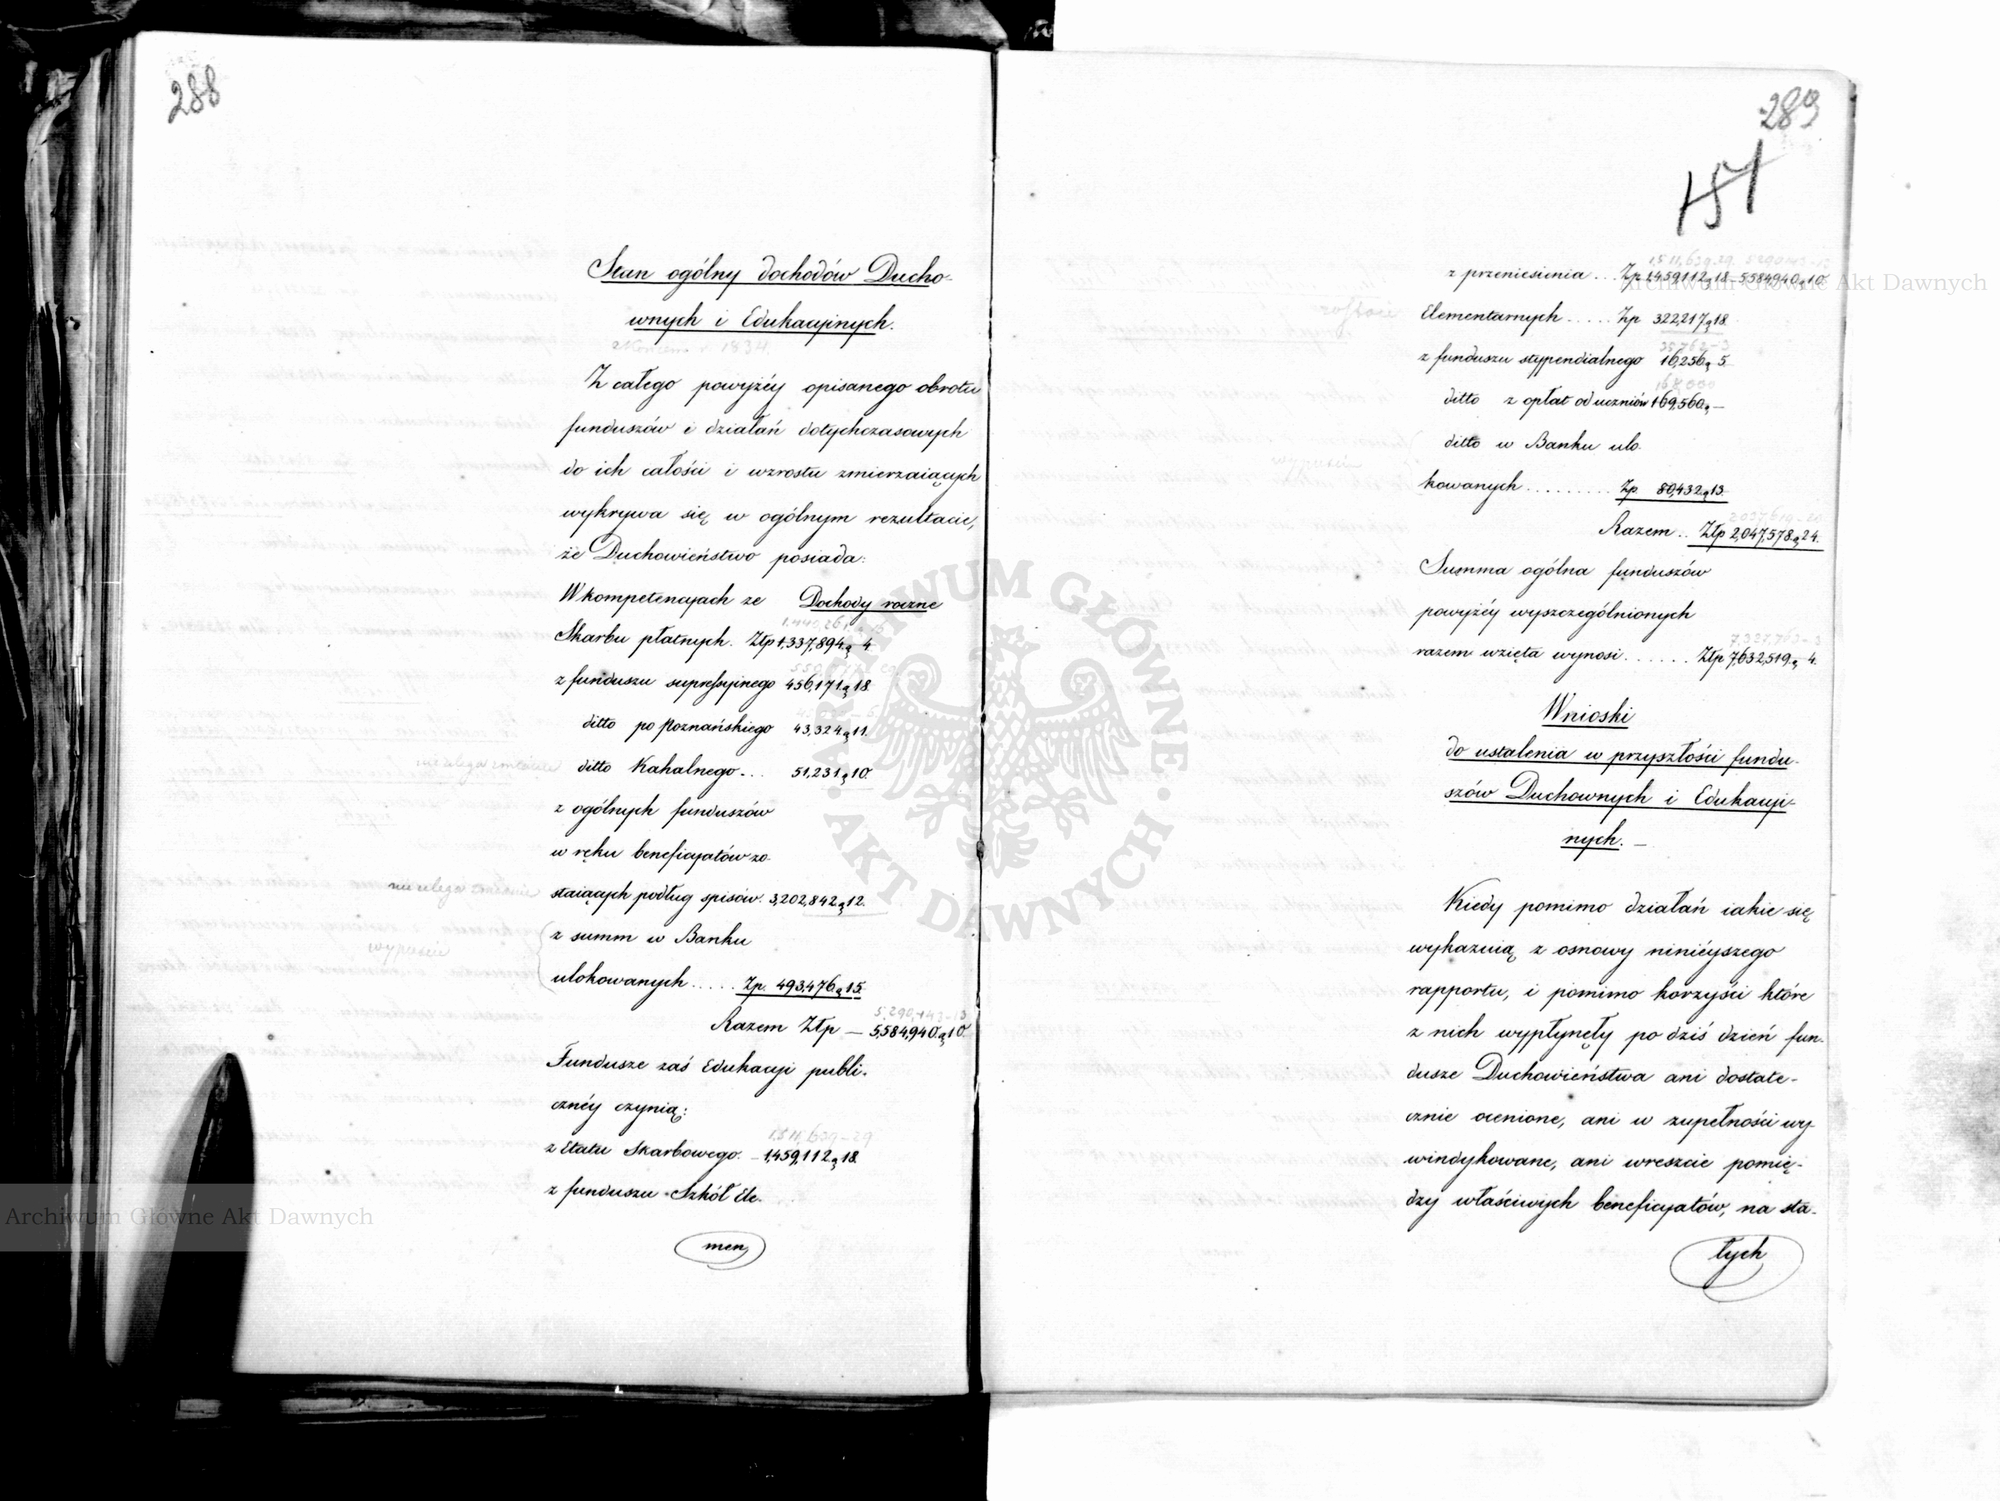 288
Stan ogólny dochodów Ducho-
wnych i Edukacyjnych.
z końcem r. 1834.
Z całego powyżéy opisanego obrotu
funduszów i działań dotychczasowych
do ich całości i wzrostu zmierzaiących
wykrywa się w ogólnym rezultacie,
że Duchowieństwo posiada:
W kompetencyach ze Dochody roczne
Skarbu płatnych. Złp 1,337,894 g 4
z funduszu supressyinego 456,171 g 18.
ditto po Poznańskiego 43,324 g 11.
nie ulega zmianie ditto Kahalnego... 51,231 g 10.
z ogólnych funduszów
w ręku beneficyatów zo-
nie ulega zmianie staiących podług spisów. 3,202,842 g 12.
z summ w Banku
wypuścić
ulokowanych ..... Zp. 493,476 g 15.
5,290,143-13
Razem Złp — 5,584,940 g 10.
Fundusze zaś Edukacyi publi-
cznéy czynią:
1,511,639-29
z Etatu Skarbowego. — 1,459,112 g 18.
z funduszu Szkół Ele-
men
289
151
1,511,639-29. 5,290,143-13
z przeniesienia ... Zp 1,459,112 g 18 — 5,584,940 g 10.
Elementarnych ..... Zp 322,217 g 18.
z funduszu stypendialnego 16,256 g 5.
168,000
ditto z opłat od uczniów 169,560 g —
ditto w Banku ulo-
kowanych ......... Zp. 80,432 g 13.
Razem .. Złp 2,047,578 g 24.
Summa ogólna funduszów
powyżéy wyszczególnionych
razem wzięta wynosi ...... Złp 7,632,519 g 4.
Wnioski
do ustalenia w przyszłości fundu-
szów Duchownych i Edukacyi-
nych. —
Kiedy pomimo działań iakie się
wykazuią z osnowy ninieyszego
rapportu, i pomimo korzyści które
z nich wypłynęły po dziś dzień fun-
dusze Duchowieństwa ani dostate-
cznie ocenione, ani w zupełności wy-
windykowane, ani wreszcie pomię-
dzy właściwych beneficyatów, na sta-
łych
ARCHIWUM GŁÓWNE · AKT DAWNYCH ·
Archiwum Główne Akt Dawnych
Archiwum Główne Akt Dawnych